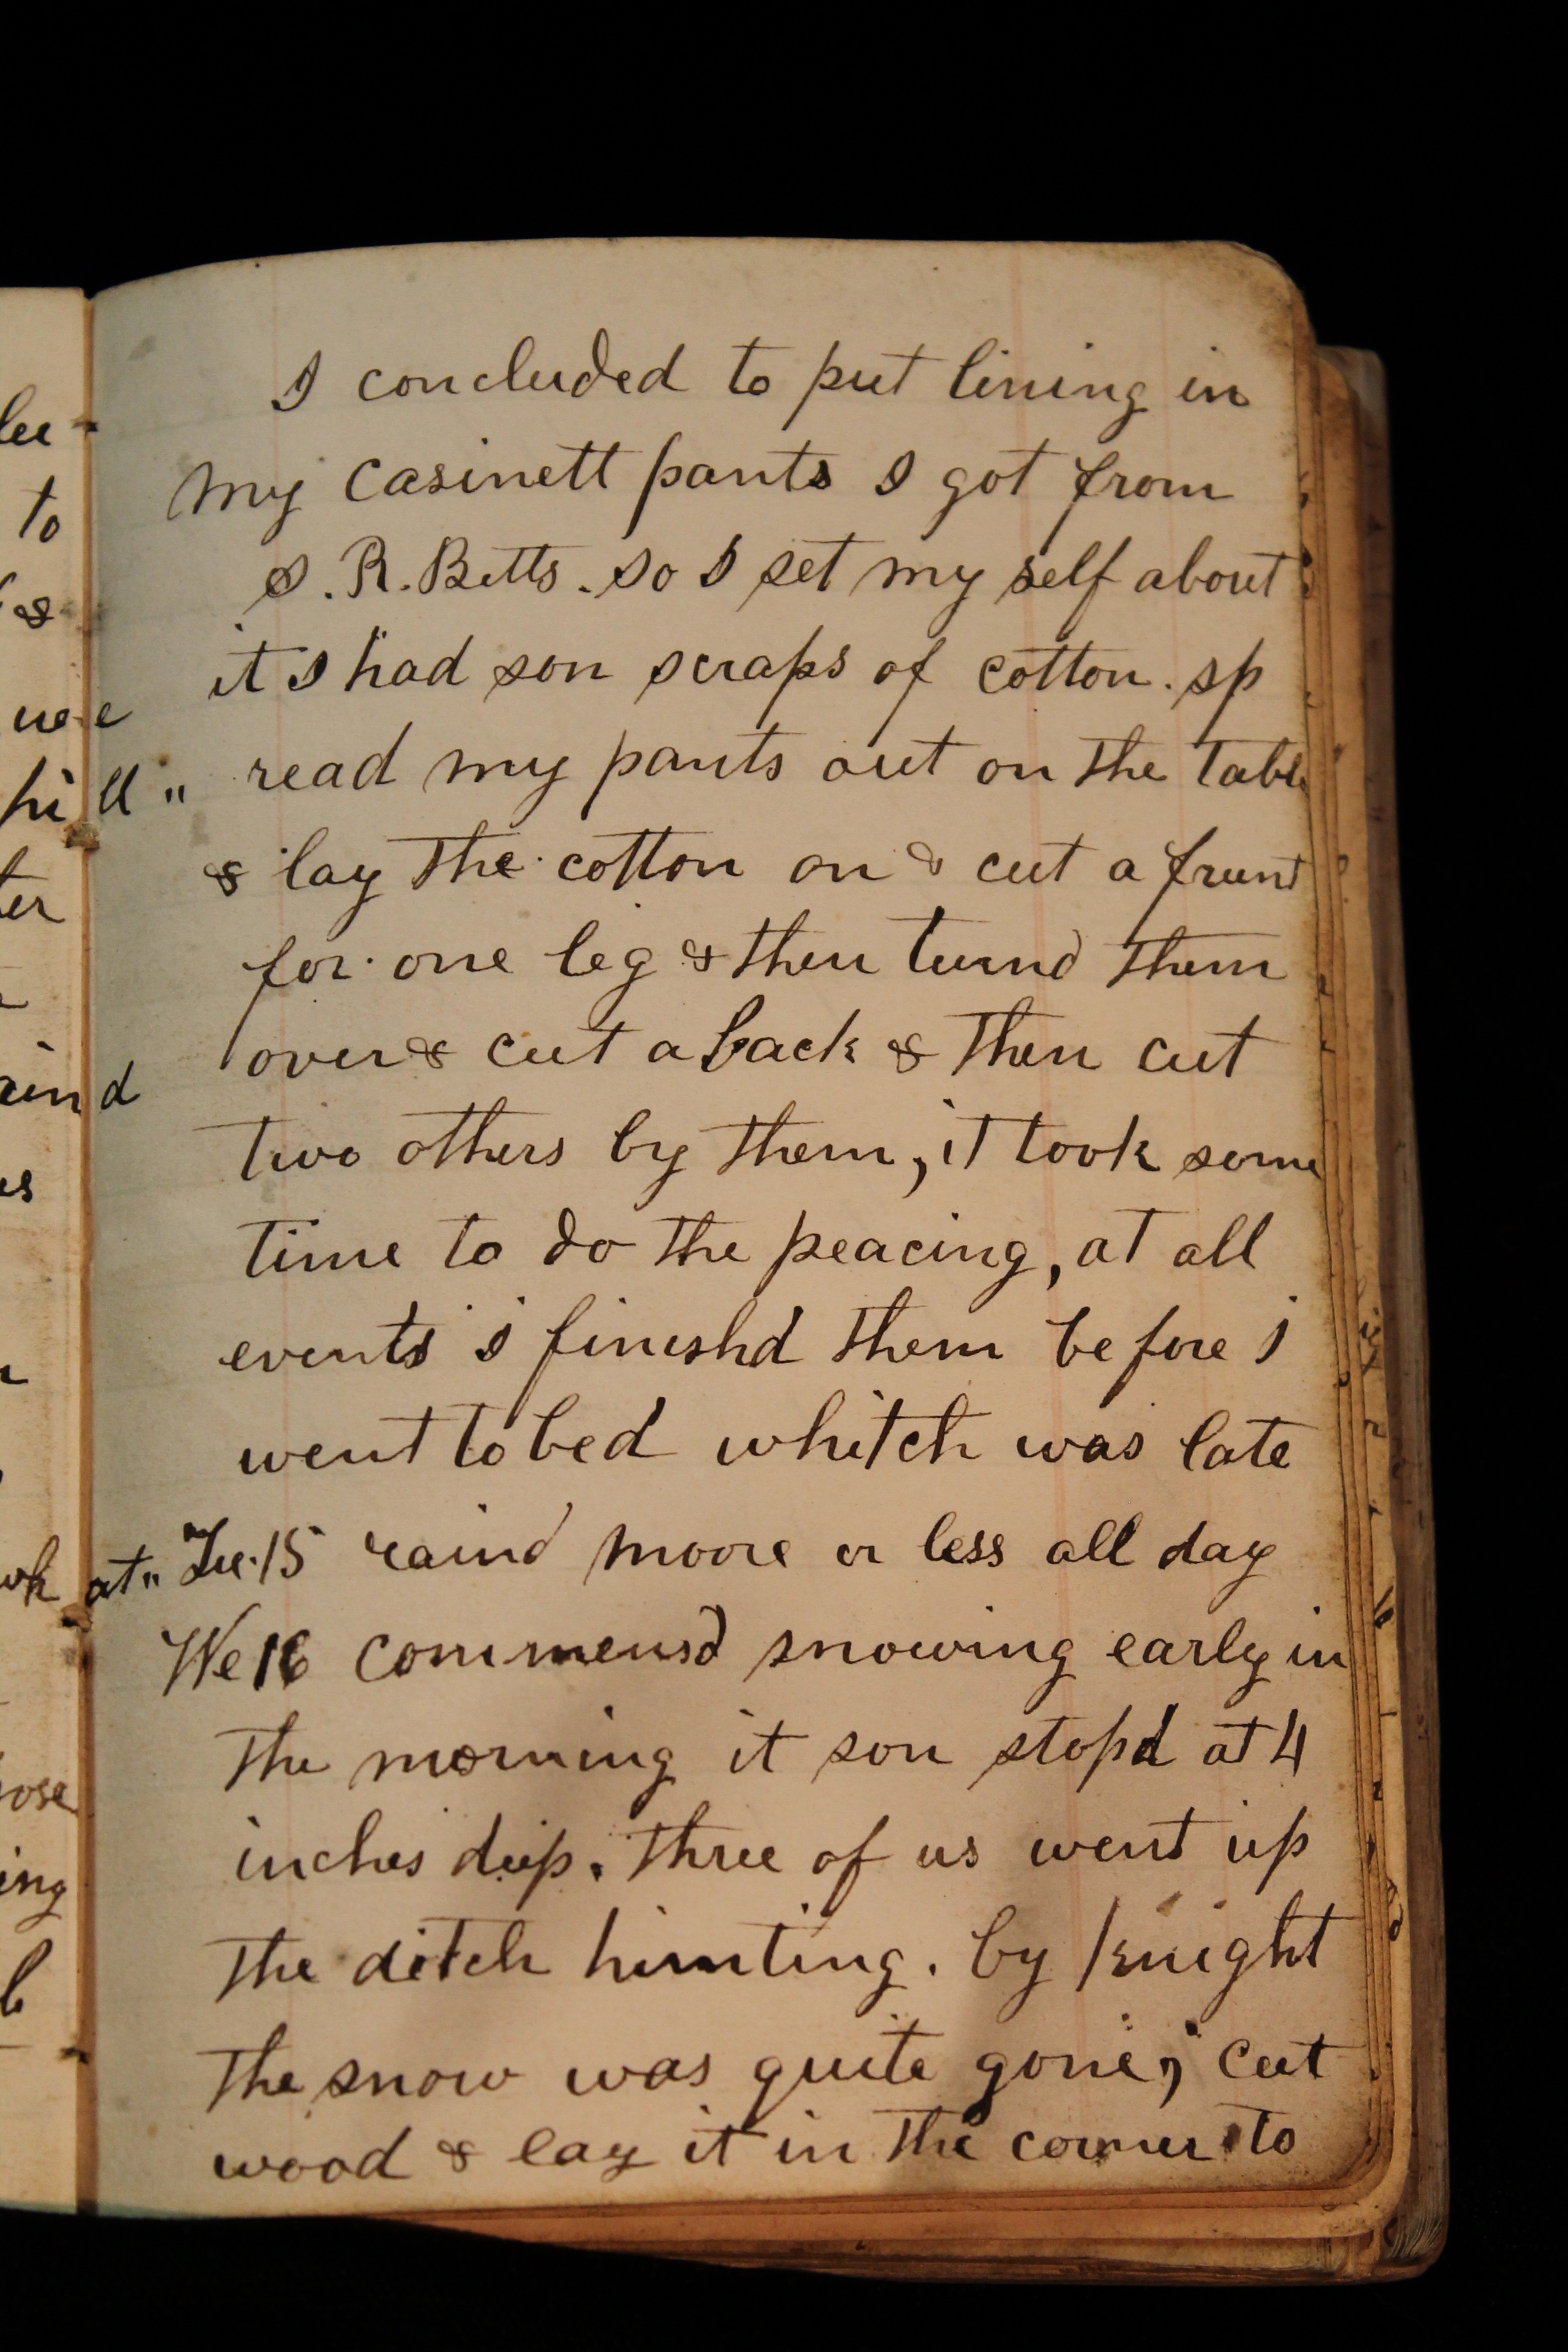 I concluded to put lining in
my casinett pants I got from
S. R. Betts. so I set my self about
it I had son scraps of cotton. sp
read my pants out on the table
& lay the cotton on & cut a frunt
for one leg & then turnd them
over & cut a back & then cut
two others by them, it took some
time to do the peacing, at all
events i finishd them before I
went to bed whitch was late
Tu. 15 raind moore or less all day
We 16 commensd snowing early in
the morning it son stopd at 4
inches deep. three of us went up
the ditch hunting. by knight
the snow was quite gone, cut
wood & lay it in the corner to